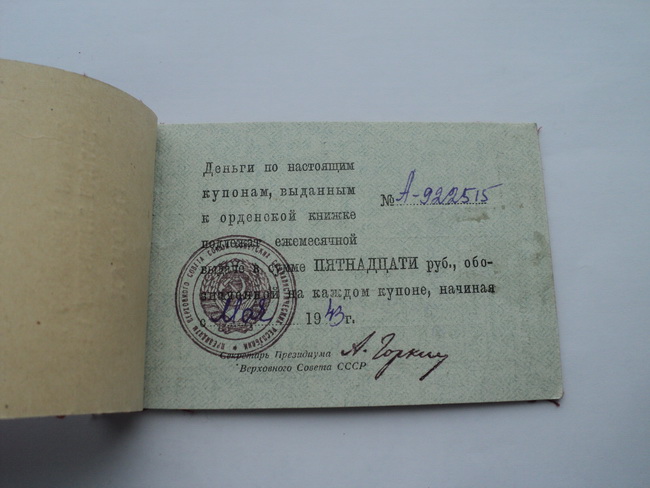 Деньги по настоящим
купонам, выданным
к орденской книжке
подлежат ежемесячной
выдаче в сумме ПЯТНАДЦАТИ руб., обо-
значенной на каждом купоне, начиная
с Мая 1943 г.
№ А-922515
Секретарь Президиума
Верховного Совета СССР
А. Горкин